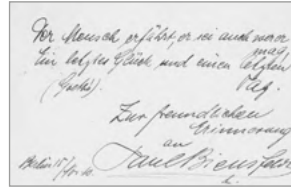 Der Mensch erfährt, er sei auch wer er mag,
Ein letztes Glück und einen letzten Tag.
(Goethe).
Zur freundlichen
Erinnerung
an
Paul Biensfeldt
Berlin 15/